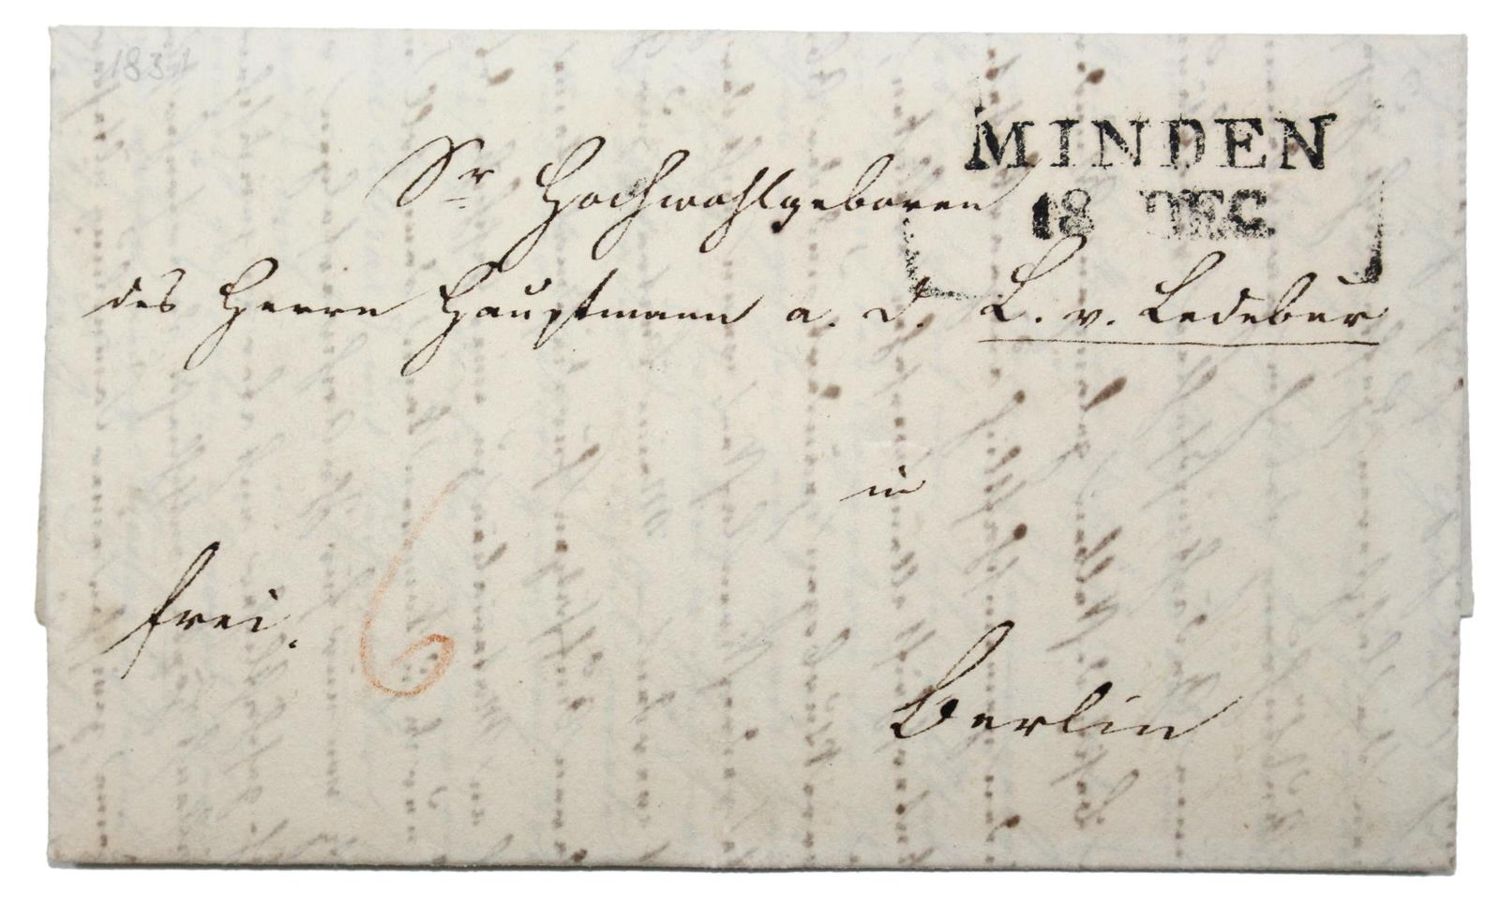 1831
MINDEN
18 DEC.
Sr Hochwohlgeboren
des Herrn Hauptmann a. D. L. v. Ledebur
in
frei. 6
Berlin